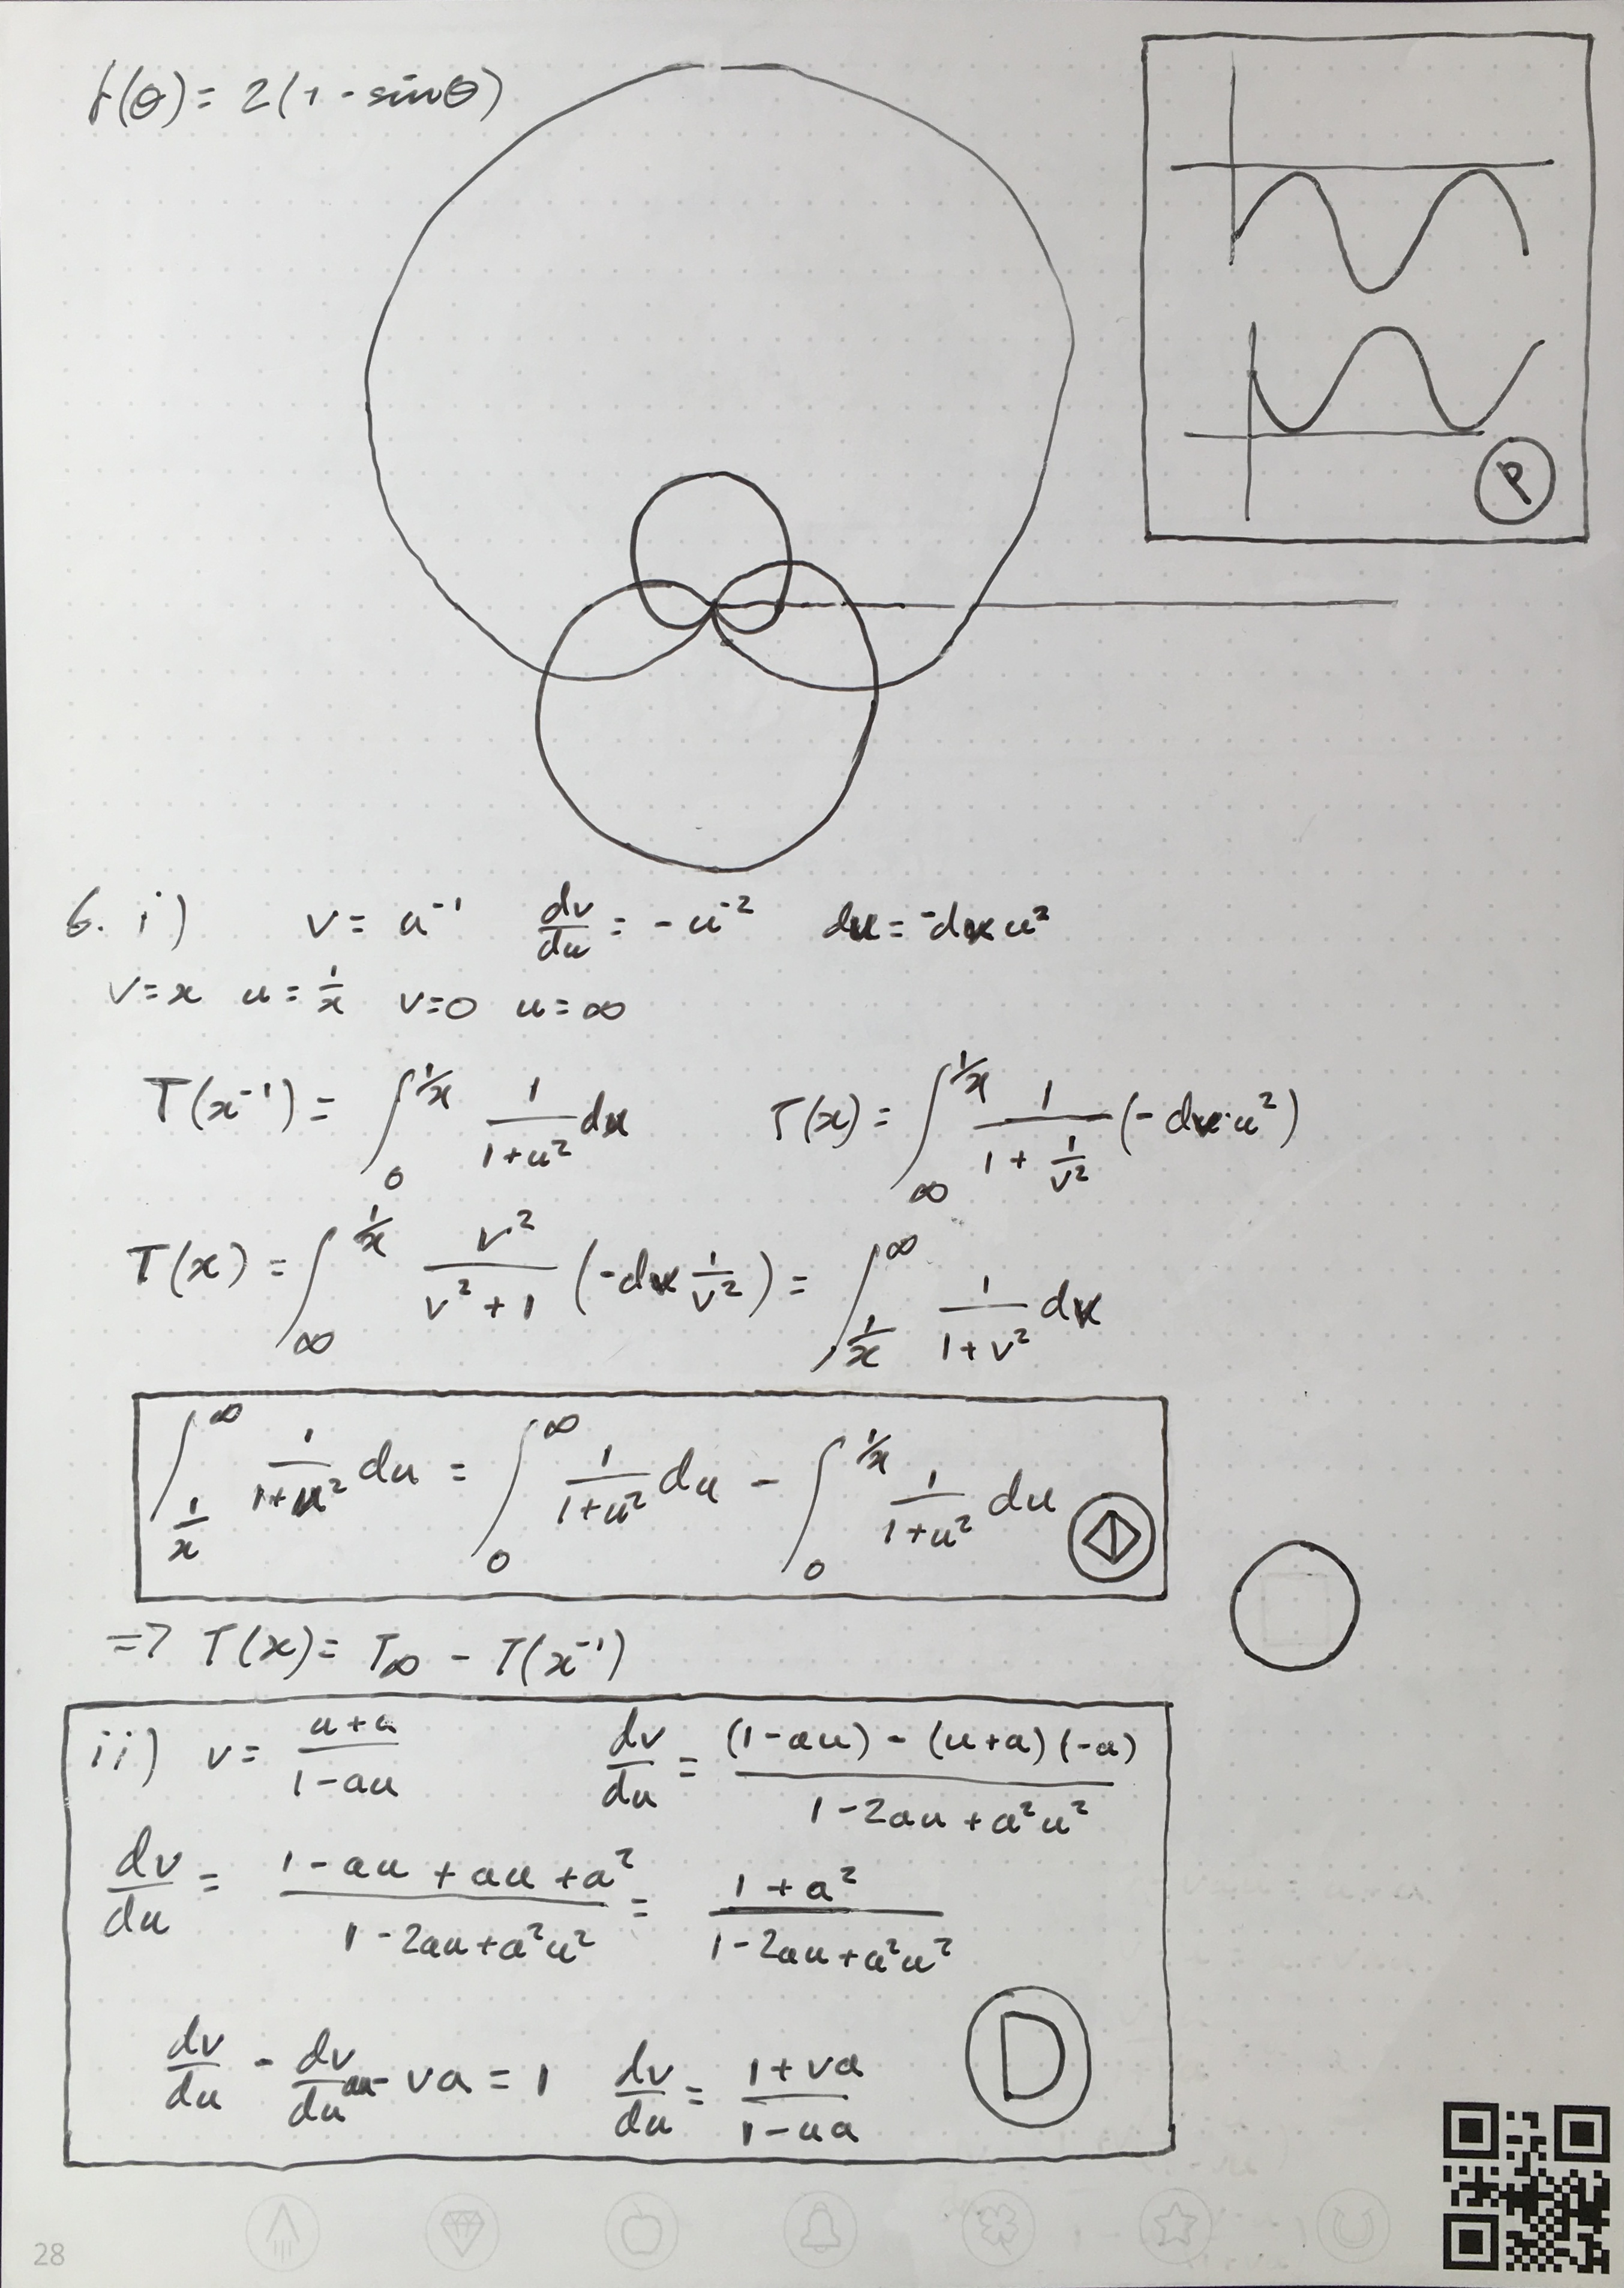 f(θ) = 2(1 - sinθ)
P
6. i) v = u⁻¹ dv/du = -u⁻² du = -dv u²
v=x u=1/x v=0 u=∞
T(x⁻¹) = ∫₀^(1/x) 1/(1+u²) du T(x) = ∫_∞^(1/x) 1/(1+1/v²) (-dv·u²)
T(x) = ∫_∞^(1/x) v²/(v²+1) (-dv 1/v²) = ∫_(1/x)^∞ 1/(1+v²) dv
∫_(1/x)^∞ 1/(1+u²) du = ∫₀^∞ 1/(1+u²) du - ∫₀^(1/x) 1/(1+u²) du
=> T(x) = T∞ - T(x⁻¹)
ii) v = (u+a)/(1-au) dv/du = ((1-au) - (u+a)(-a))/(1-2au+a²u²)
dv/du = (1-au+au+a²)/(1-2au+a²u²) = (1+a²)/(1-2au+a²u²)
dv/du - dv/du au - va = 1 dv/du = (1+va)/(1-ua)
D
28